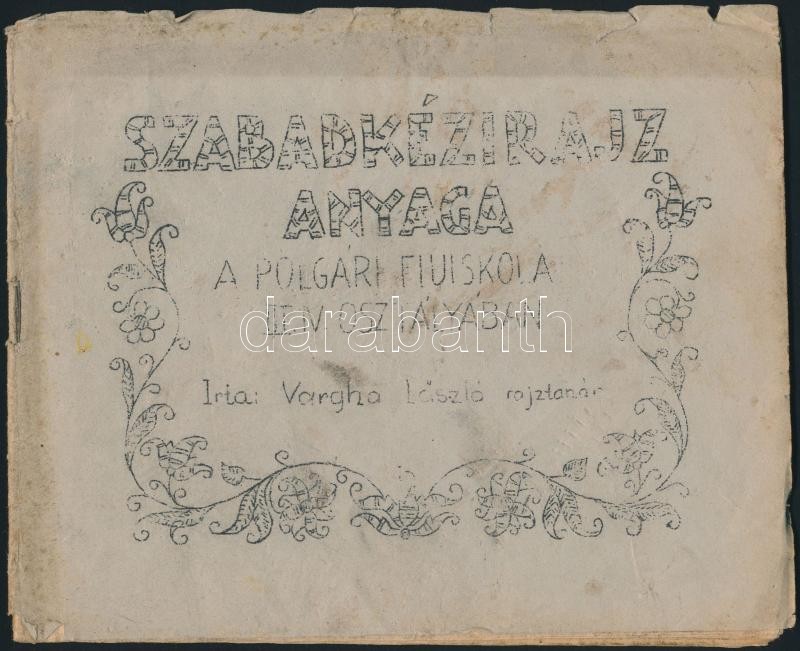 SZABADKÉZIRAJZ
ANYAGA
A POLGÁRI FIUISKOLA
OSZTÁLYÁBAN
darabanth
Irta: Vargha László rajztanár